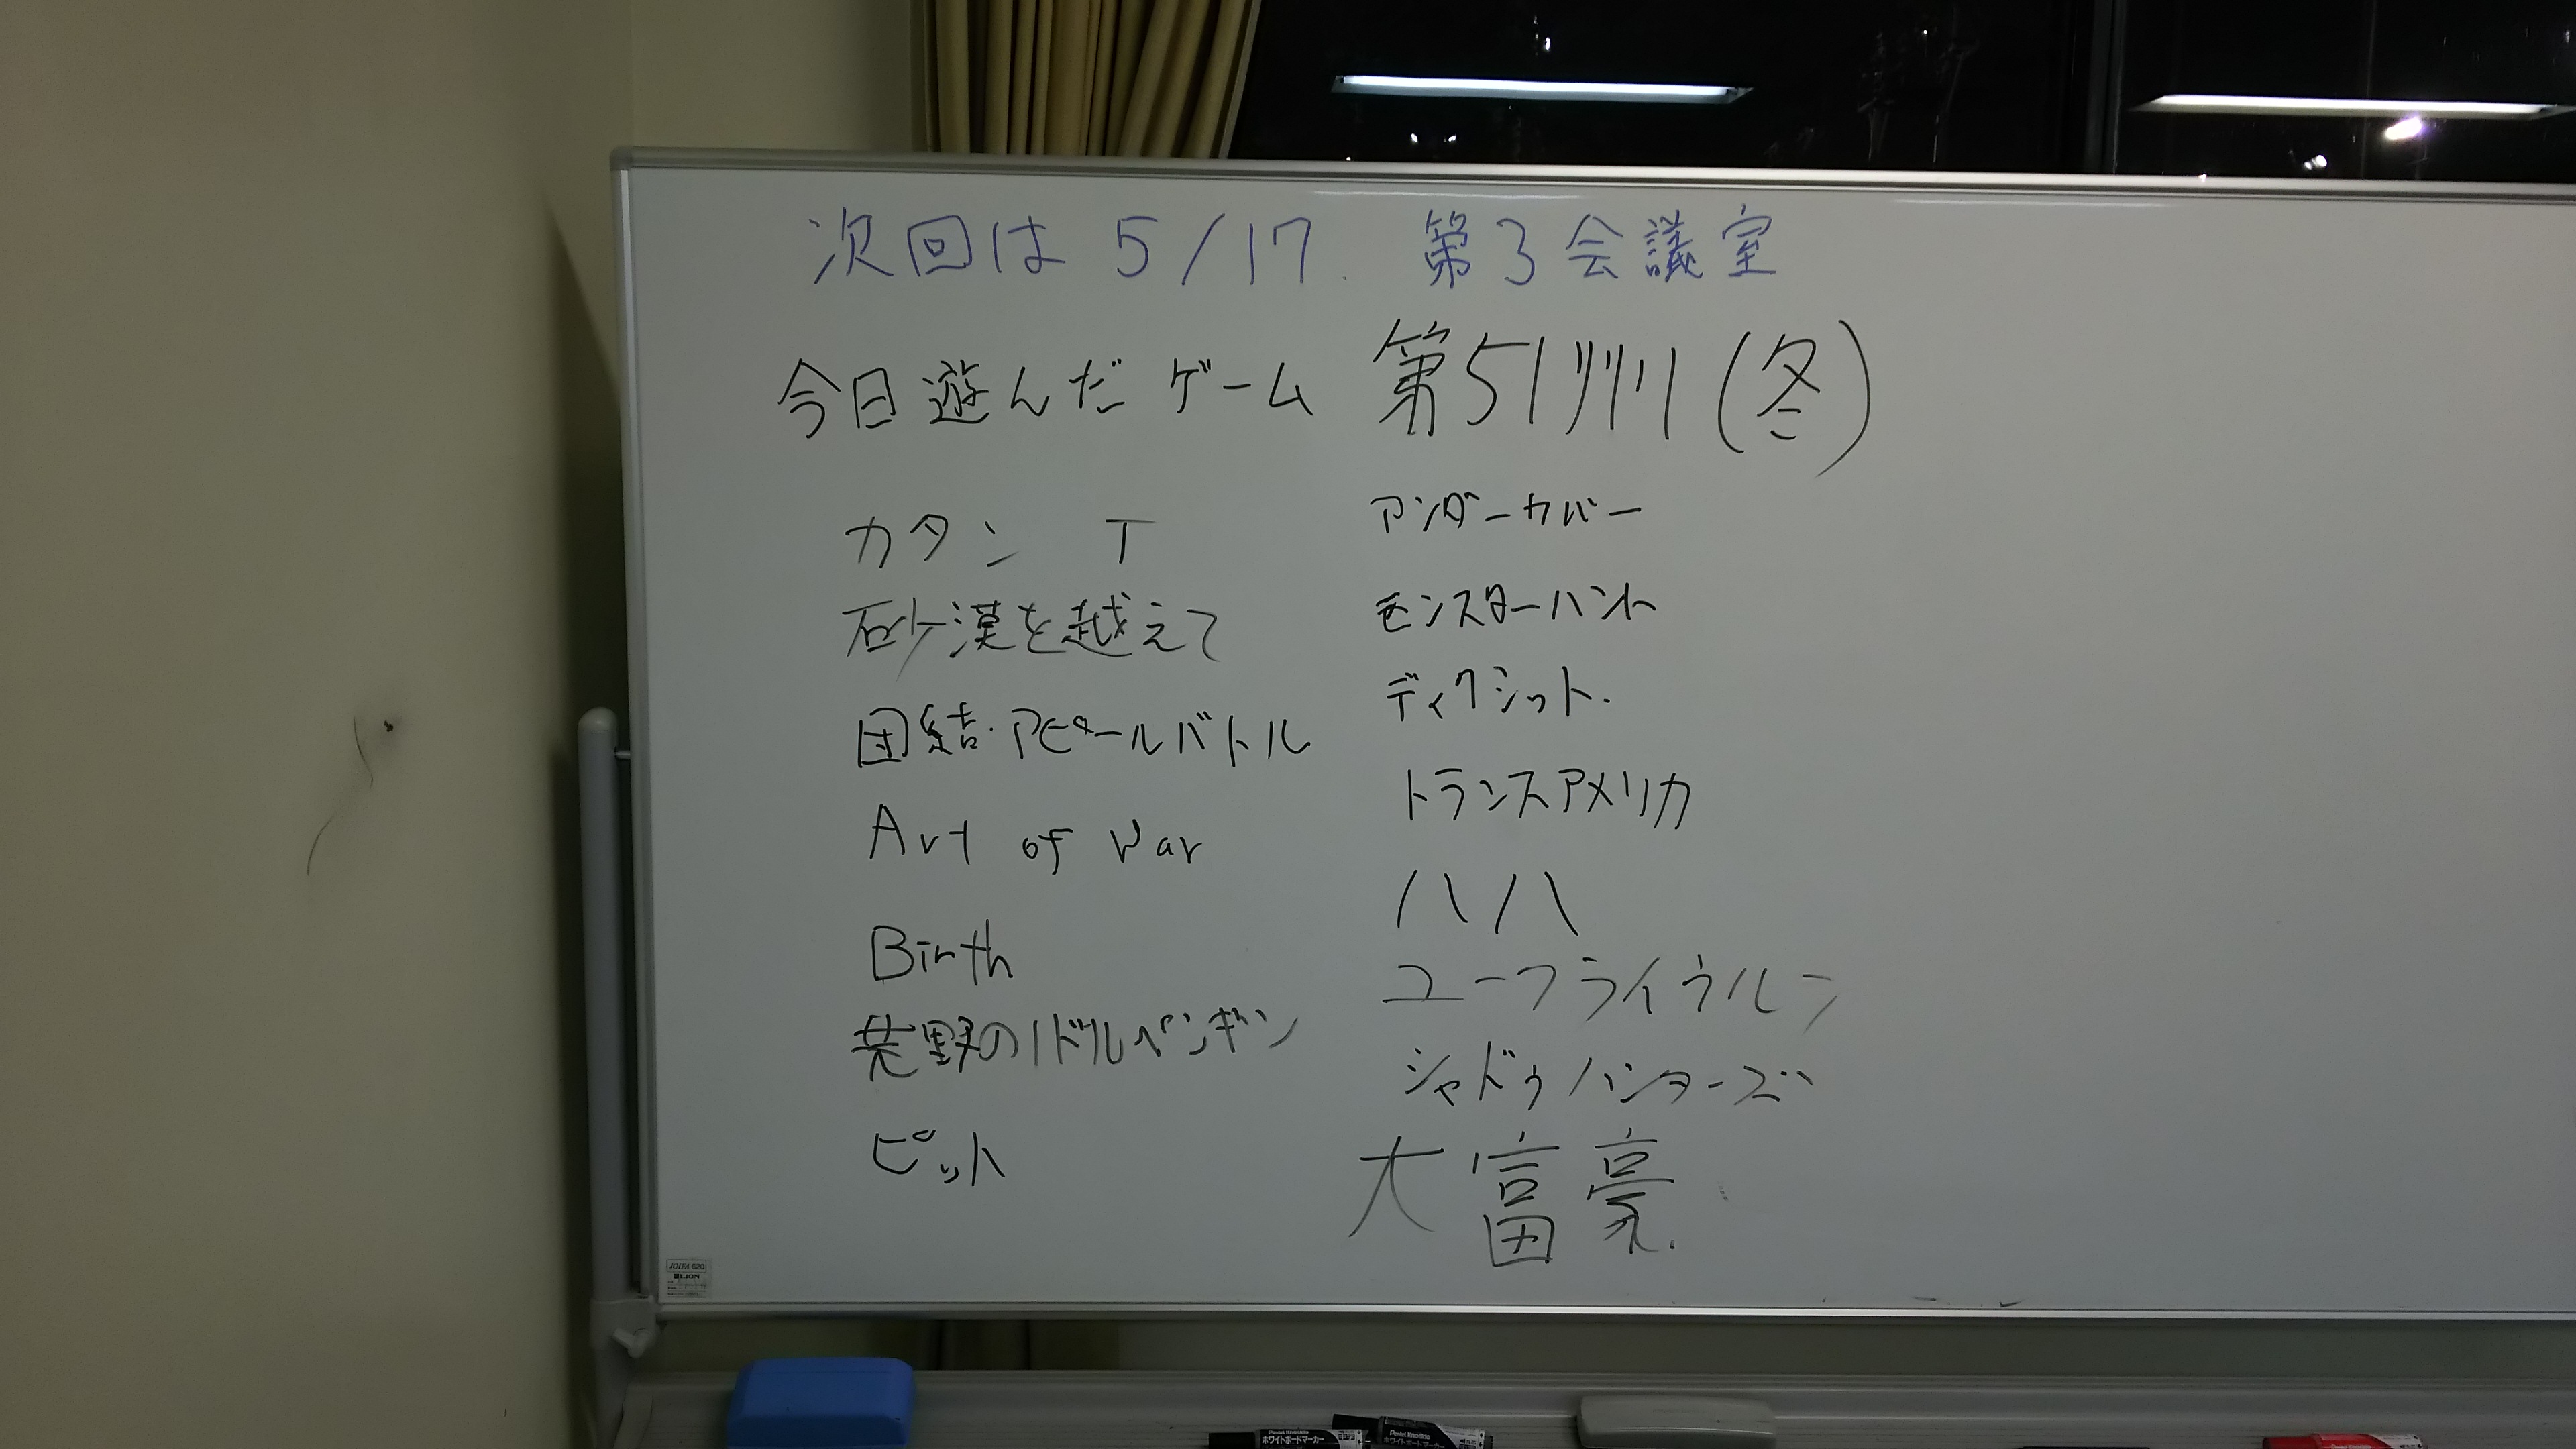 次回は 5/17. 第3会議室
今日遊んだゲーム
第51州(冬)
カタン T
砂漠を越えて
団結・アピールバトル
Art of War
Birth
荒野の1ドルペンギン
ピット
アンダーカバー
モンスターハント
ディクシット.
トランスアメリカ
ハハ
シャドウハンターズ
大富豪.
JOIFA 620
LION
Pentel Knockle
ホワイトボードマーカー
Pentel Knockle
ホワイトボードマーカー